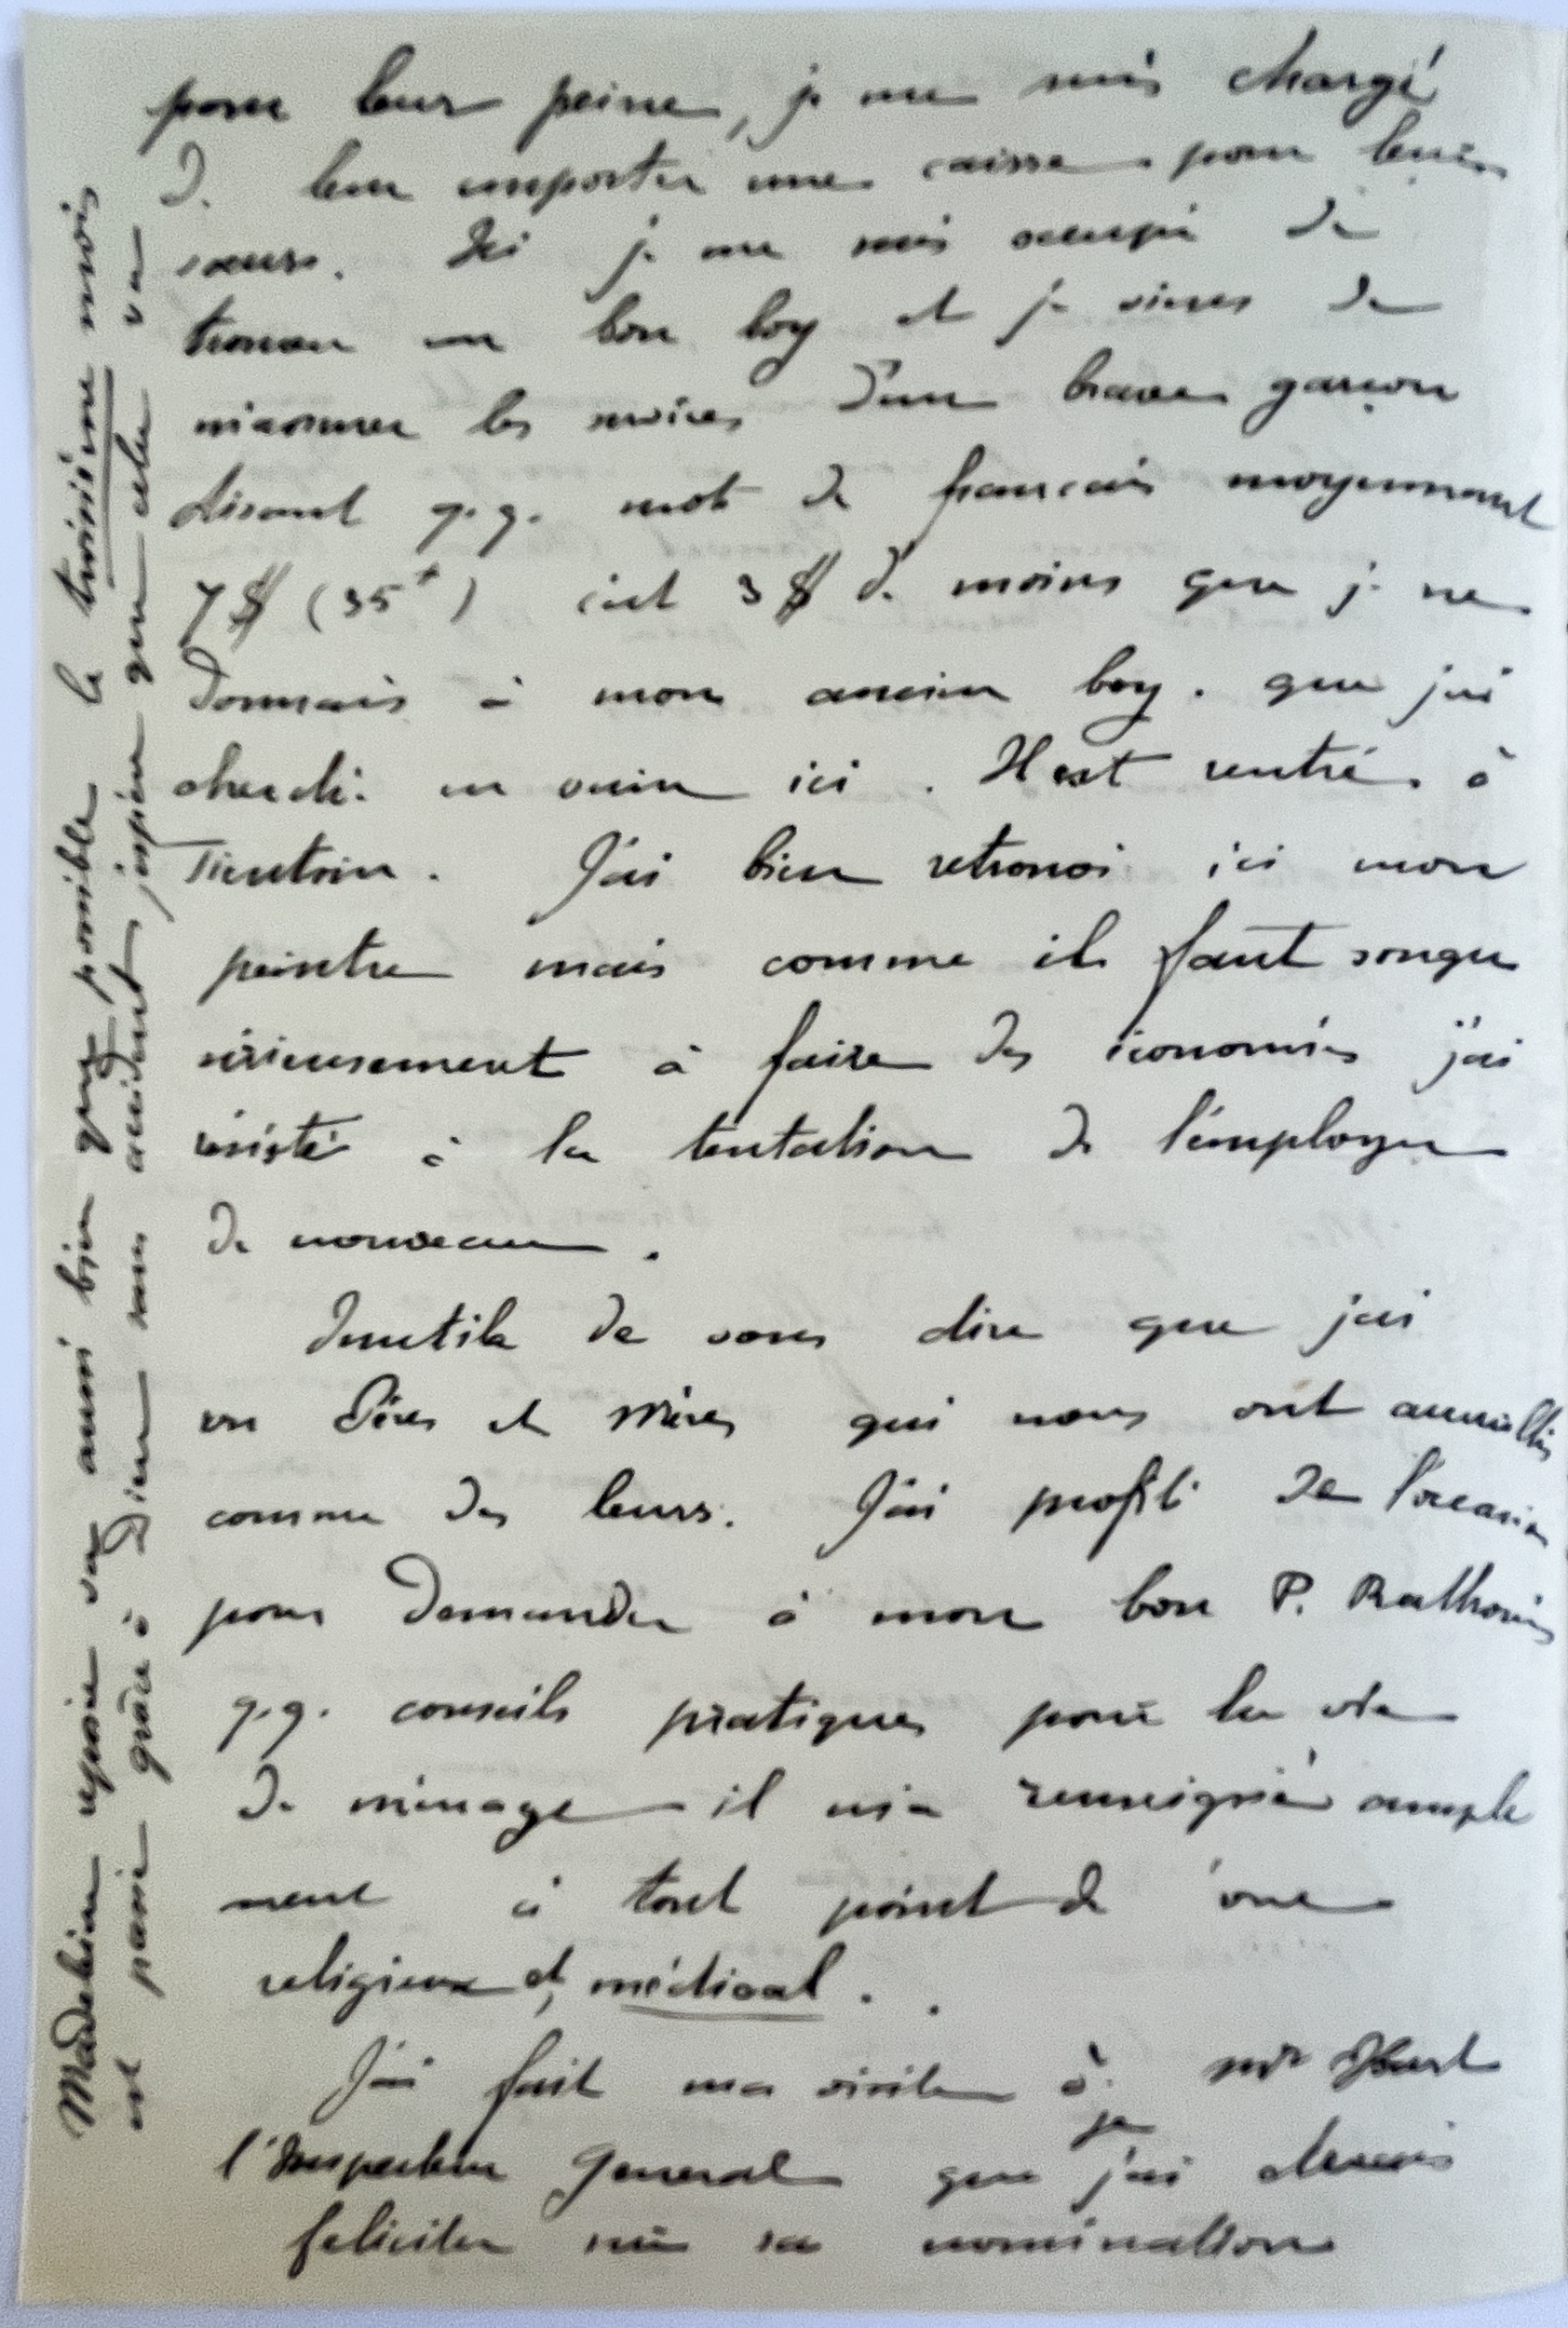 pour leur peine, je me suis chargé
de leur emporter une caisse pour leurs
sœurs. Ici je me suis occupé de
trouver un bon boy et je viens de
m'assurer les services d'un brave garçon
disant q.q. mots de français moyennant
7$ (35f) c'est 3$ de moins que je ne
donnais à mon ancien boy. que j'ai
cherché en vain ici. Il est rentré à
Tientsin. J'ai bien retrouvé ici mon
peintre mais comme il faut songer
sérieusement à faire des économies j'ai
résisté à la tentation de l'employer
de nouveau.
Inutile de vous dire que j'ai
vu Pères et Mères qui nous ont accueillis
comme des leurs. J'ai profité de l'occasion
pour demander à mon bon P.
q.q. conseils pratiques pour la vie
de ménage il m'a renseigné ample
ment à tout point de vue
religieux et, médical.
J'ai fait ma visite à Mr
l'Inspecteur General que je j'ai
feliciter sur sa nomination
Madeleine va aussi bien que possible le troisième mois
est passé grâce à Dieu sans accident j'espère que cela va